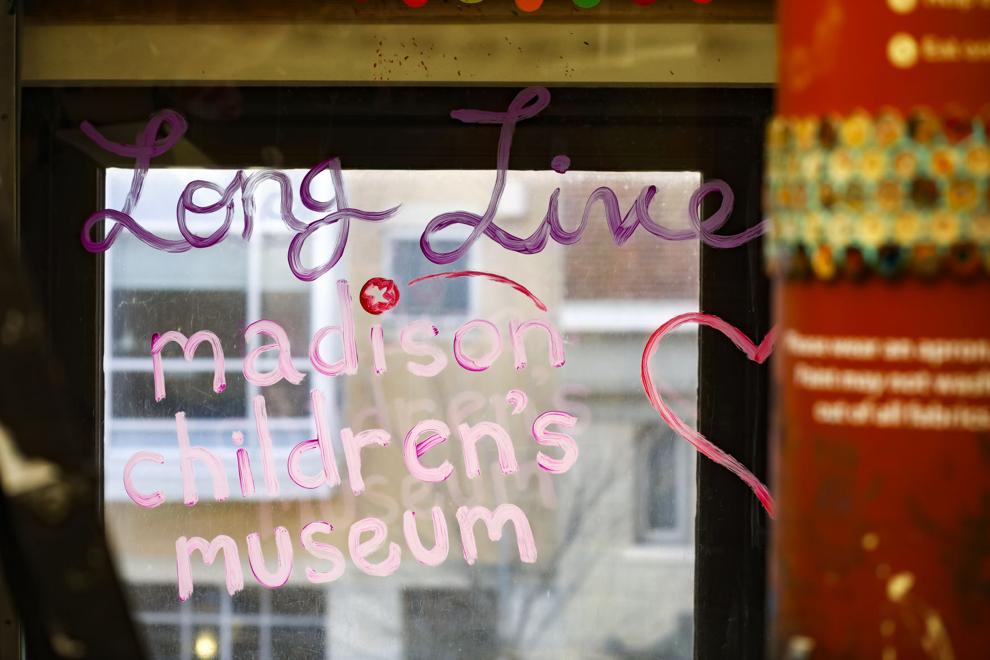 Long Live
madison
children's
museum
wear an apron
may not wash
out of all fabrics